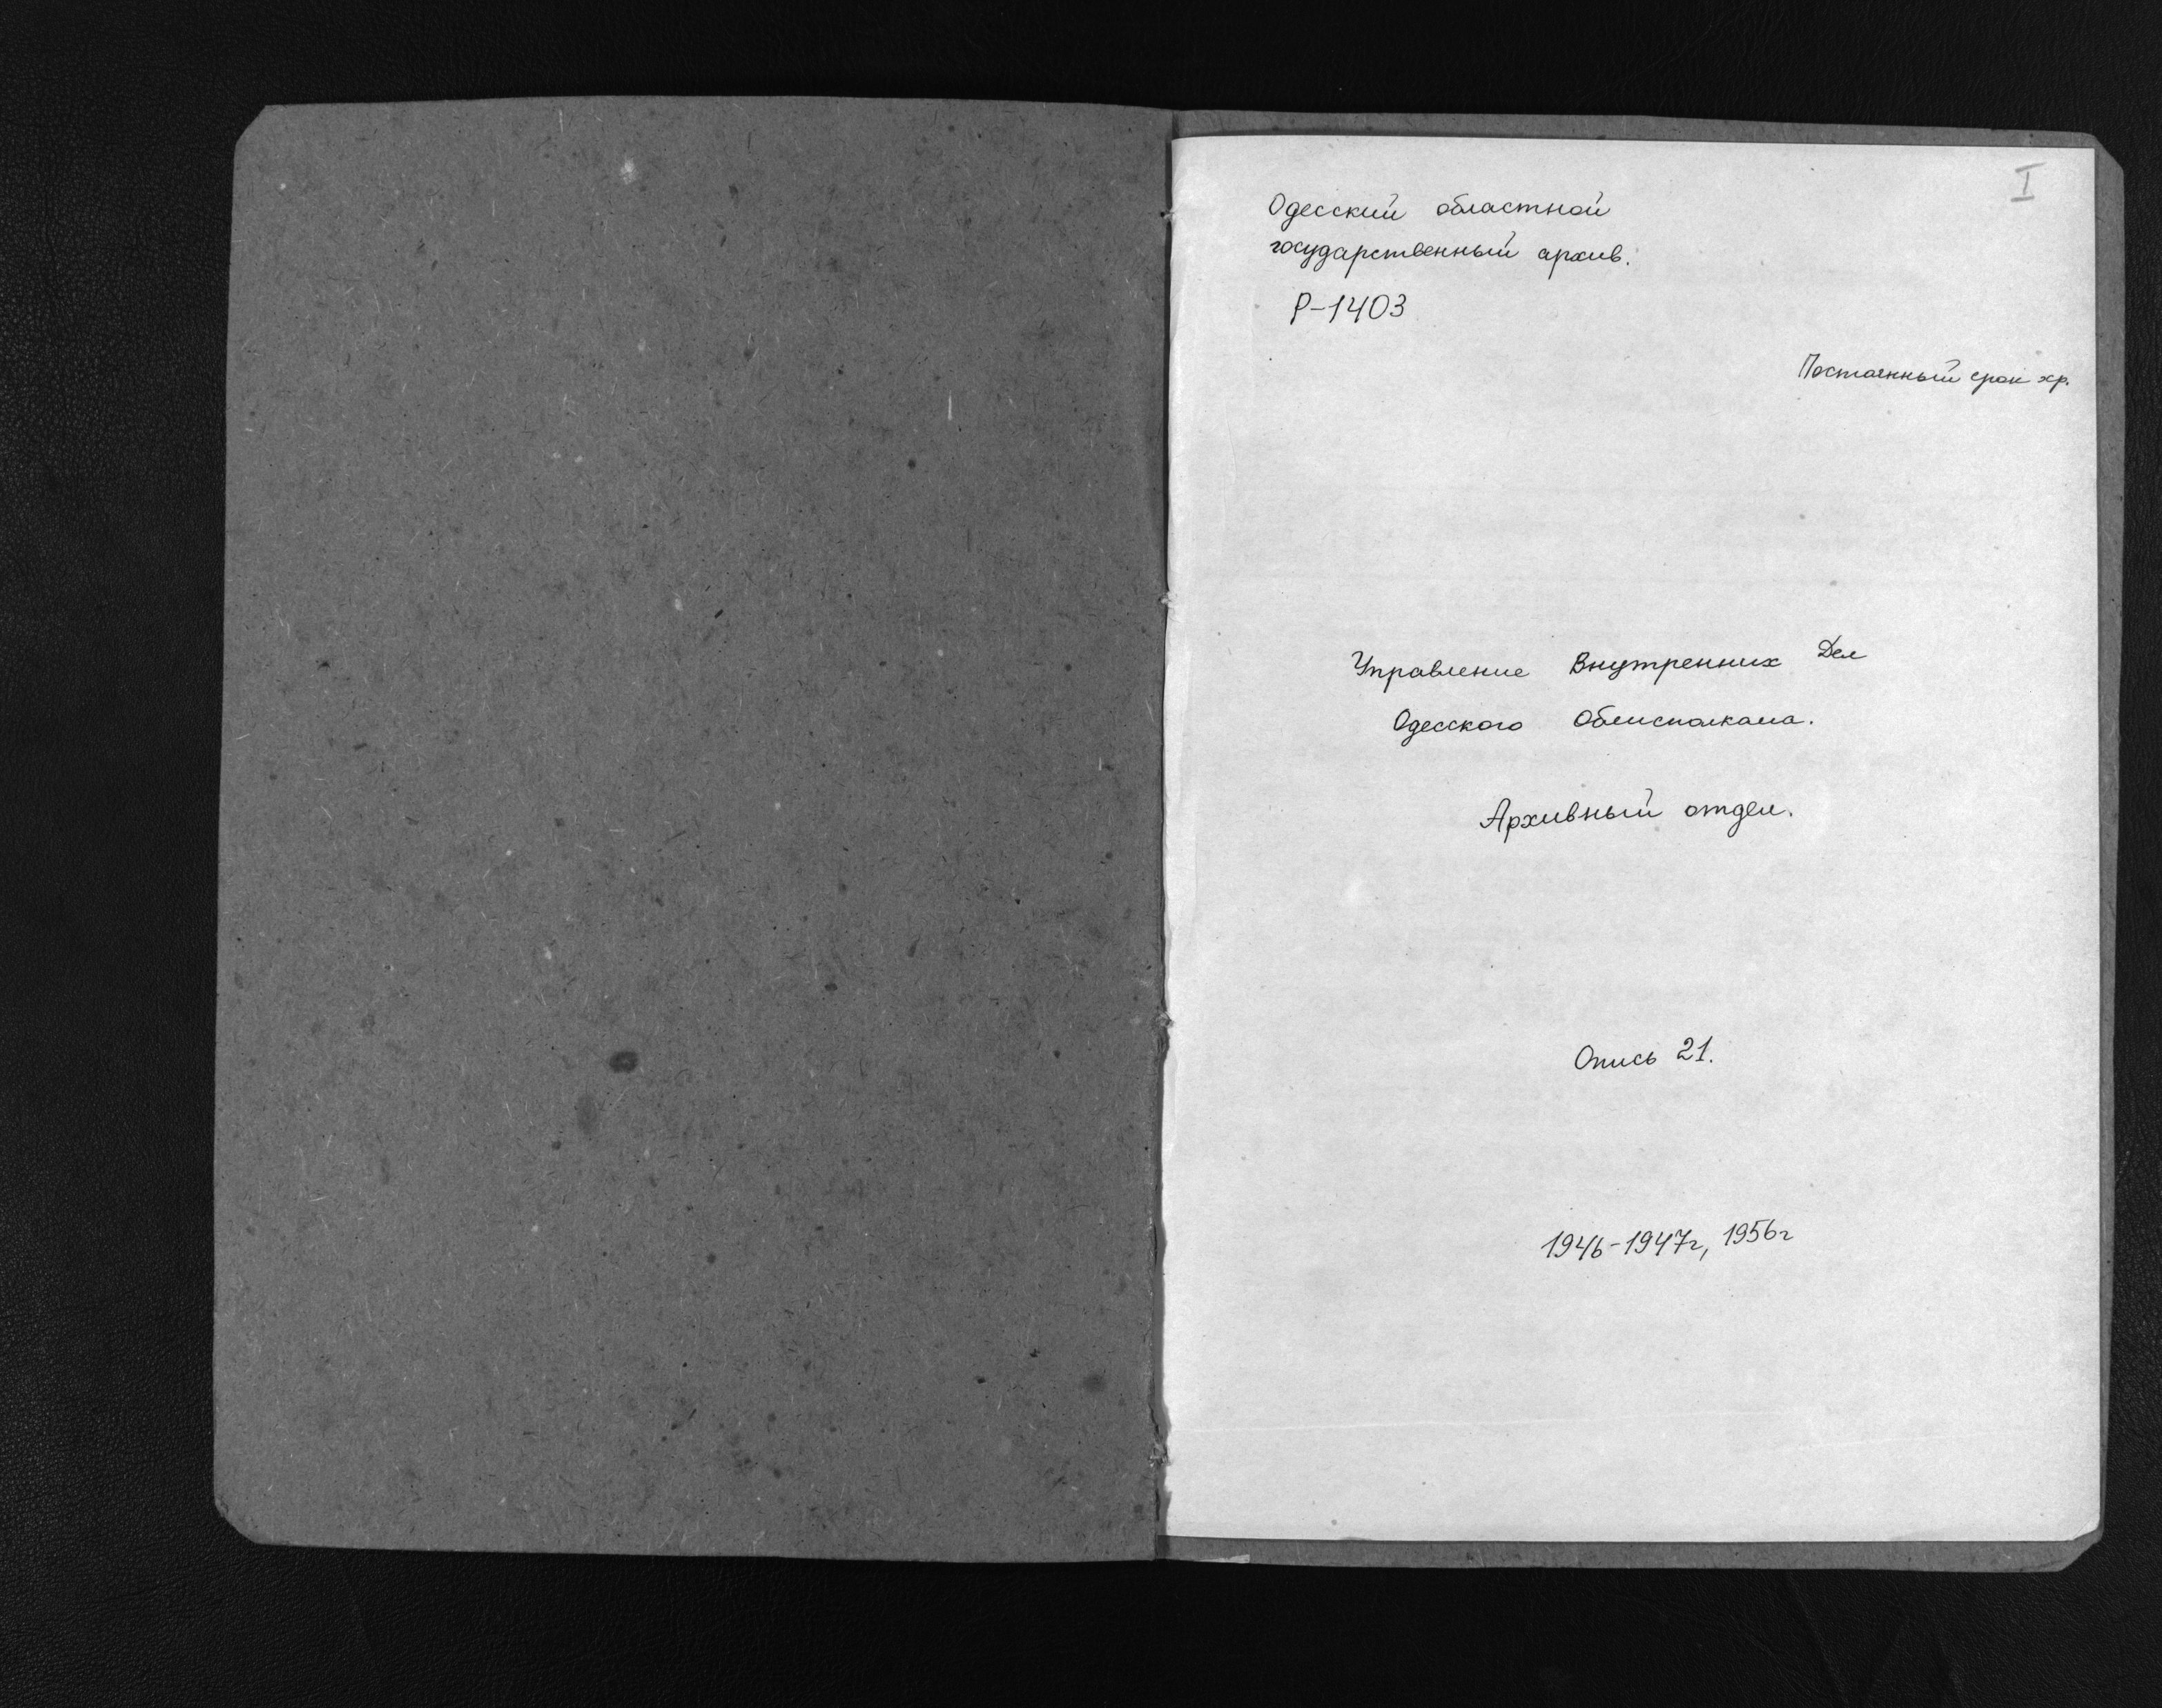 I
Одесский областной
государственный архив.
Р-1403
Постоянный срок хр.
Управление Внутренних Дел
Одесского Облисполкома.
Архивный отдел.
Опись 21.
1946-1947г, 1956г